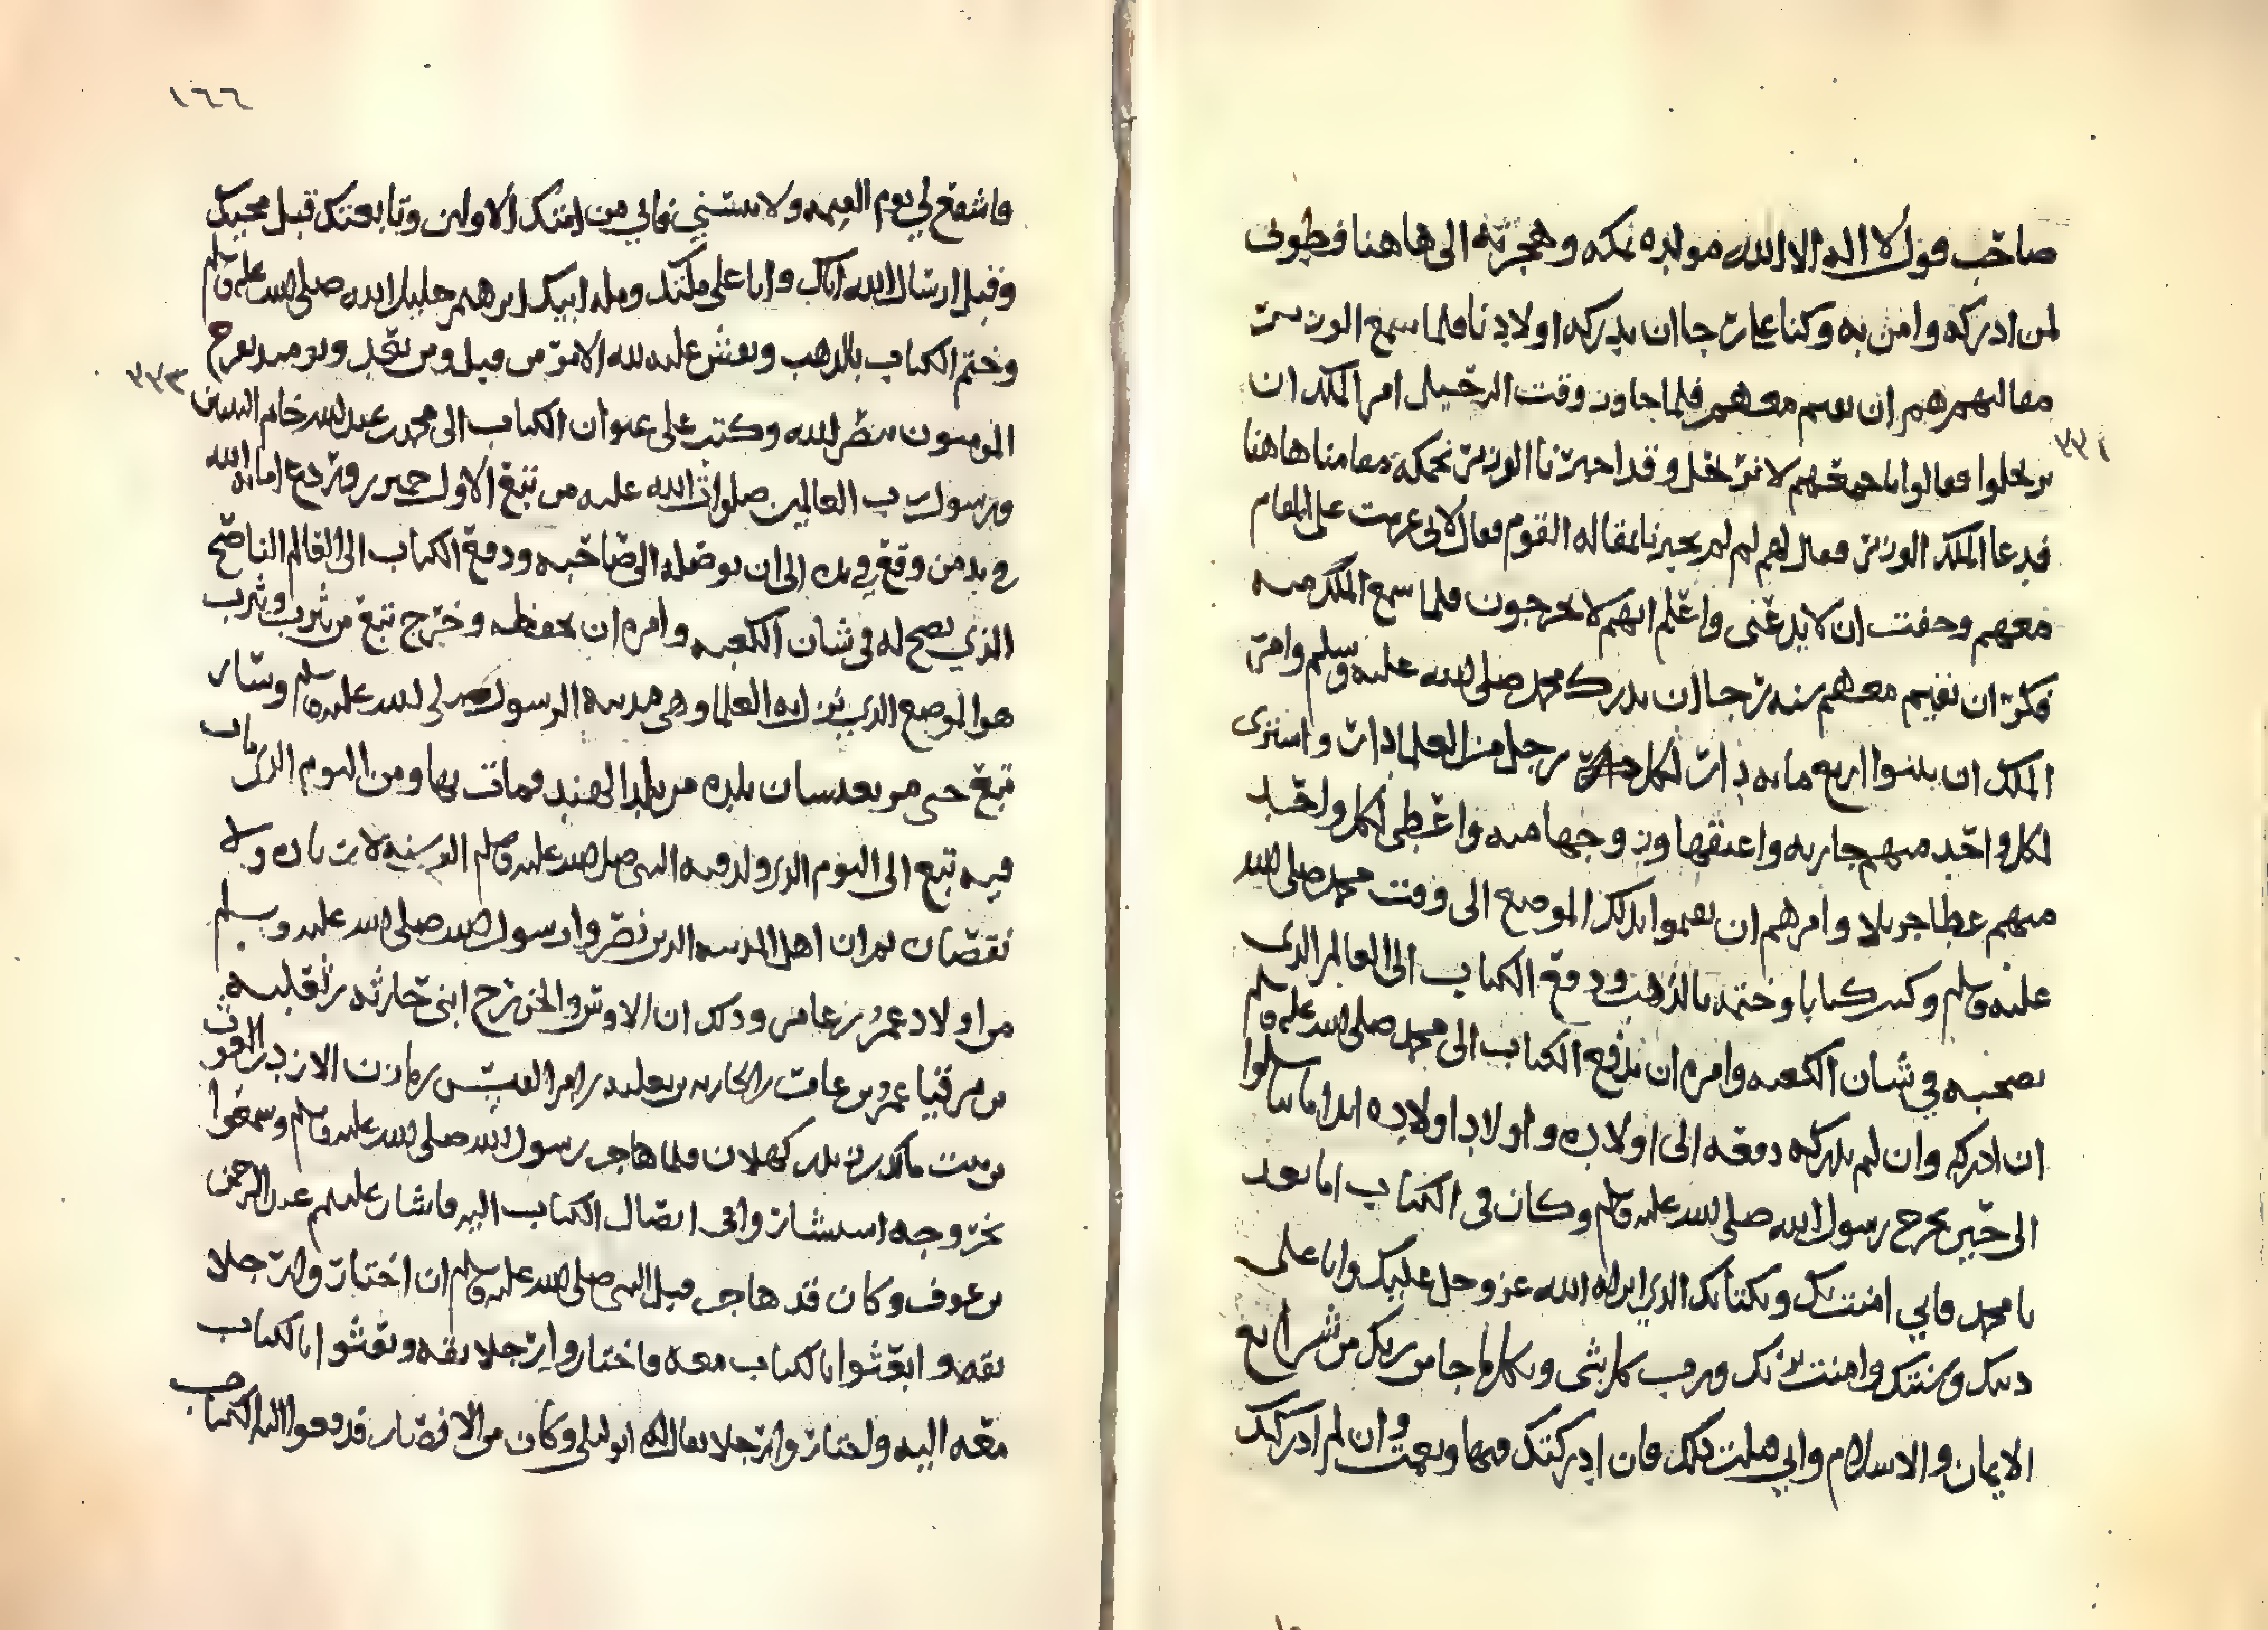 صاحب قول لا اله الا الله مولده بمكه وهجرته الى هاهنا فطوبى
لمن ادركه وامن به وكنا على رجا ان يدركه اولادنا فلما سمع الوزير
مقالتهم هم ان يقيم معهم فلما جا وقت الرحيل امر الملك ان
يرتحلوا فقالوا باجمعهم لا نرتحل وقد اخبرنا الوزير بحكمة مقامنا هاهنا
فدعا الملك الوزير فقال لهم لم لم تخبرنا بمقاله القوم فقال لاني عزمت على المقام
معهم وخفت ان لا يدعني واعلم انهم لا يخرجون فلما سمع الملك منه
فكر ان يقيم معهم سنه رجا ان يدرك محمد صلى الله عليه وسلم وامر
الملك ان يبنوا اربع مايه دار لكل رجل من العلما دار واشترى
لكل واحد منهم جاريه واعتقها وزوجها منه واعطى لكل واحد
منهم عطا جزيلا وامرهم ان يقيموا بذلك الموضع الى وقت محمد صلى الله
عليه وسلم وكتب كتابا وختمه بالذهب ودفع الكتاب الى العالم الذي
نصحه في شان الكعبه وامره ان يدفع الكتاب الى محمد صلى الله عليه وسلم
ان ادركه وان لم يدركه دفعه الى اولاده واولاد اولاده ابدا ما تناسلوا
الى حين يخرج رسول الله صلى الله عليه وسلم وكان في الكتاب اما بعد
يا محمد فاني امنت بك وبكتابك الذي انزله الله عز وجل عليك وانا على
دينك وسنتك وامنت بربك ورب كل شى وبكل ما جا من ربك من شرايع
الايمان والاسلام واني قبلت ذلك فان ادركتك فبها ونعمت وان لم ادركك
١٦٦
فاشفع لي يوم القيمه ولا تنسني فاني من امتك الاولين وتابعتك قبل مجيك
وقبل ارسال الله اياك وانا على ملتك وملة ابيك ابرهيم خليل الله صلى الله عليه وسلم
وختم الكتاب بالذهب ونقش عليه لله الامر من قبل ومن بعد ويومئذ يفرح
المومنون بنصر الله وكتب على عنوان الكتاب الى محمد بن عبد الله خاتم النبيين
ورسول رب العالمين صلوات الله عليه من تبع الاول حمير امانه الله
في يد من وقع في يده الى ان يوصله الى صاحبه ودفع الكتاب الى العالم الناصح
الذي نصح له في شان الكعبه وامره ان يحفظه وخرج تبع من يثرب ويثرب
هو الموضع الذي نزل به العلما وهي مدينه الرسول صلى الله عليه وسلم وسار
تبع حتى مر بعدسان بلده من بلد الهند فمات بها ومن اليوم الذي مات
فيه تبع الى اليوم الذي ولد فيه النبي صلى الله عليه وسلم الف سنه لا زياده ولا
نقصان ثم ان اهل المدينه الذين نصروا رسول الله صلى الله عليه وسلم
من اولاد عمرو بن عامر وذلك ان الاوس والخزرج ابني حارثه بن ثعلبه
بن مزقيا عمرو بن عامر بن الحارثه بن ثعلبه بن امرا القيس بن مازن الازد بن الغوث
بن نبت مالك بن زيد كهلان فلما هاجر رسول الله صلى الله عليه وسلم وسمعوا
بخروجه استشاروا في ايصال الكتاب اليه فاشار عليهم عبد الرحمن
بن عوف وكان قد هاجر قبل النبي صلى الله عليه وسلم ان اختاروا رجلا
ثقه وابعثوا بالكتاب معه فاختاروا رجلا ثقه وبعثوا بالكتاب
معه اليه واختاروا رجلا يقال له ابو ليلى وكان من الانصار فدفعوا اليه الكتاب